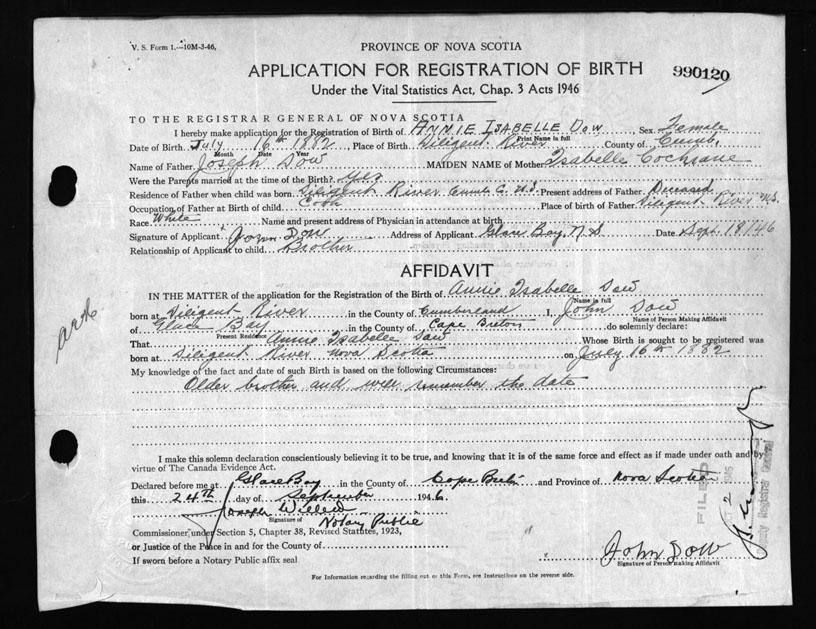 V. S. Form 1.—10M-3-46.
PROVINCE OF NOVA SCOTIA
APPLICATION FOR REGISTRATION OF BIRTH
990120
Under the Vital Statistics Act, Chap. 3 Acts 1946
TO THE REGISTRAR GENERAL OF NOVA SCOTIA
I hereby make application for the Registration of Birth of ANNIE ISABELLE DOW, Sex Female
Print Name in full
Date of Birth July 16th 1882, Place of Birth Diligent River County of Cumb.
Month Date Year
Name of Father Joseph Dow MAIDEN NAME of Mother Isabelle Cochrane
Were the Parents married at the time of the Birth? Yes
Residence of Father when child was born Diligent River Cumb. Co. N.S. Present address of Father Deceased
Occupation of Father at Birth of child Cook Place of birth of Father Diligent River N.S.
Race White Name and present address of Physician in attendance at birth
Signature of Applicant John Dow Address of Applicant Glace Bay, N.S Date Sept. 18/46
Relationship of Applicant to child Brother
AFFIDAVIT
IN THE MATTER of the application for the Registration of Birth of Annie Isabelle Dow
Name in full
born at Diligent River in the County of Cumberland I, John Dow
Name of Person Making Affidavit
of Glace Bay in the County of Cape Breton do solemnly declare:
Present Residence
That Annie Isabelle Dow Whose Birth is sought to be registered was
born at Diligent River Nova Scotia on July 16th 1882
My knowledge of the fact and date of such Birth is based on the following Circumstances:
Older brother and well remember the date
I make this solemn declaration conscientiously believing it to be true, and knowing that it is of the same force and effect as if made under oath and by
virtue of The Canada Evidence Act.
Declared before me at Glace Bay in the County of Cape Breton and Province of Nova Scotia
this 24th day of September 1946
Joseph
Signature of Notary Public
Commissioner under Section 5, Chapter 38, Revised Statutes, 1923,
or Justice of the Peace in and for the County of
John Dow
Signature of Person making Affidavit
If sworn before a Notary Public affix seal
For Information regarding the filling out of this Form, see Instructions on the reverse side.
FILED
Deputy Registrar General